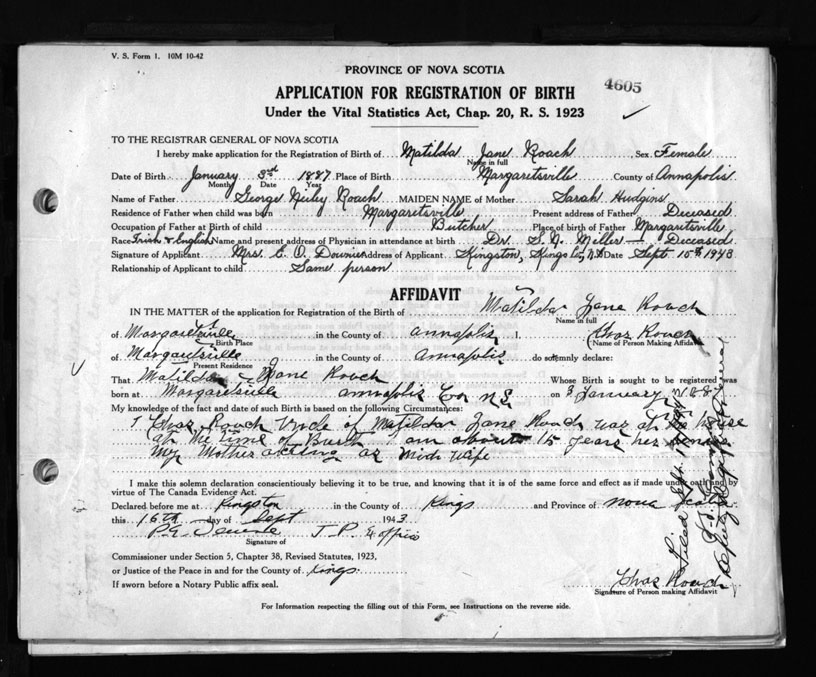 V. S. Form 1. 10M 10-42
PROVINCE OF NOVA SCOTIA
4605
APPLICATION FOR REGISTRATION OF BIRTH
Under the Vital Statistics Act, Chap. 20, R. S. 1923
TO THE REGISTRAR GENERAL OF NOVA SCOTIA
I hereby make application for the Registration of Birth of Matilda Jane Roach Sex Female
Name in full
Date of Birth January 3rd 1887 Place of Birth Margaretsville County of Annapolis
Month Date Year
Name of Father George Roach MAIDEN NAME of Mother Sarah Hudgins
Residence of Father when child was born Margaretsville Present address of Father Deceased
Occupation of Father at Birth of child Butcher Place of birth of Father Margaretsville
Race Irish & English Name and present address of Physician in attendance at birth Dr. S. N. Miller - Deceased
Signature of Applicant Mrs. C. O. Downie Address of Applicant Kingston, Kings Co, N.S. Date Sept 15th 1943
Relationship of Applicant to child Same person
AFFIDAVIT
IN THE MATTER of the application for Registration of the Birth of Matilda Jane Roach
Name in full
of Margaretsville in the County of Annapolis I. Chas Roach
Birth Place (Name of Person Making Affidavit
of Margaretsville in the County of Annapolis do solemnly declare:
Present Residence
That Matilda Jane Roach Whose Birth is sought to be registered was
born at Margaretsville Annapolis Co N.S. on 3 January
My knowledge of the fact and date of such Birth is based on the following Circumstances:
I Chas Roach Uncle of Matilda Jane Roach was at the house
at the time of Birth I am about 15 years her senior
My Mother acting as Mid Wife
I make this solemn declaration conscientiously believing it to be true, and knowing that it is of the same force and effect as if made under oath and by
virtue of The Canada Evidence Act.
Declared before me at Kingston in the County of Kings and Province of Nova Scotia
this 16th day of Sept 1943.
P. E. J. P. & office
Signature of
Commissioner under Section 5, Chapter 38, Revised Statutes, 1923,
or Justice of the Peace in and for the County of Kings
If sworn before a Notary Public affix seal.
Chas Roach
Signature of Person making Affidavit
For Information respecting the filling out of this Form, see Instructions on the reverse side.
Filed Sept.
Deputy Registrar General